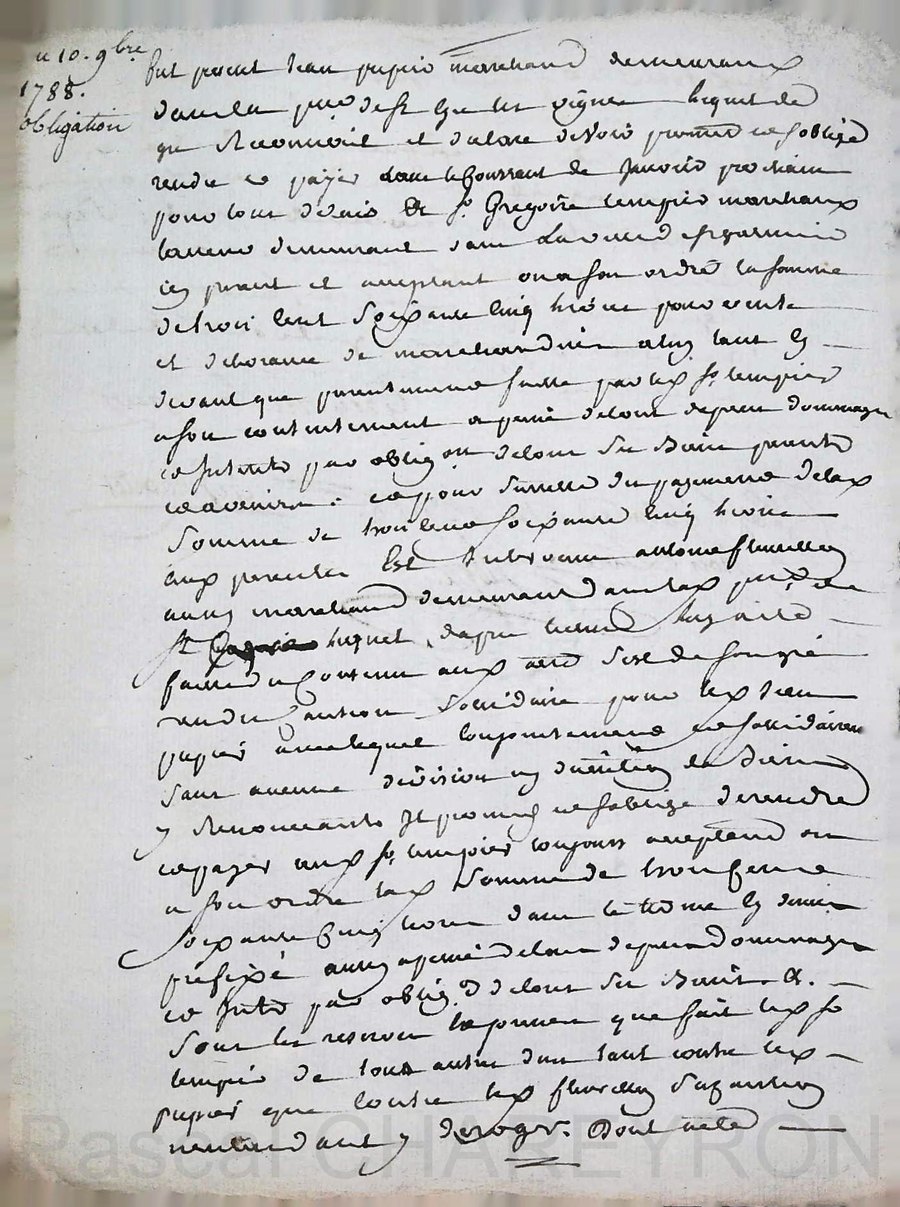 u 10. 9bre
1788.
obligation
fut present Jean papié marchand demeurant
dans la
qu reconnoit et declare devoir promet ce s oblige
rendre ce payer dans le Courrant de Janvié prochain
pour tout delais sr. Gregoire tempié marchand
demeurant dans
icy present et acceptant ou a son ordre la somme
de trois cent soixante cinq livres pour vente
et delivrance de marchandises a luy tant cy
devant que presentement faitte par led sr. tempier
a son contentement a peine de tous depens dommages
ce interets par oblig on de tous ses biens presents
ce avenirs. ce pour surette du payement de lad
somme de trois cent soixante cinq livres
aux presentes Est Intervenu antoine fleurellon
aussy marchand demeurant dans lad
st huguet
faitte du Contenu aux actes sest de son gré
rendu Caution solidaire pour led Jean
papier avec lequel conjointement ce sollidairement
sans aucune division ny discution de biens
y Renonceants Il promis ce soblige de rendre
ce payer aud sr. tempier toujours acceptant ou
a son ordre lad Somme de trois Cent
soixante Cinq livres dans le terme cy dessus
préfixé aussy a peine de tous depens dommages
ce Interets par oblig.on de tous ses Biens &.
Sous les reserves expresses que fait led sr
tempié de tous autres dus tant contre led
papier que Contre led fleurellon sa Caution
nentendant y deroger. Dont acte
Pascal CHAPEYRON